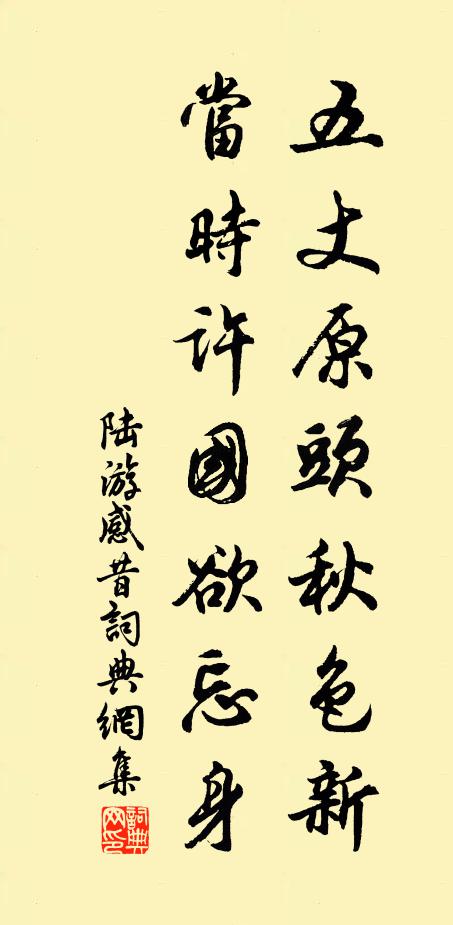 五丈原頭秋色新
當時許國欲忘身
陆游感昔詞典網集
詞典網印